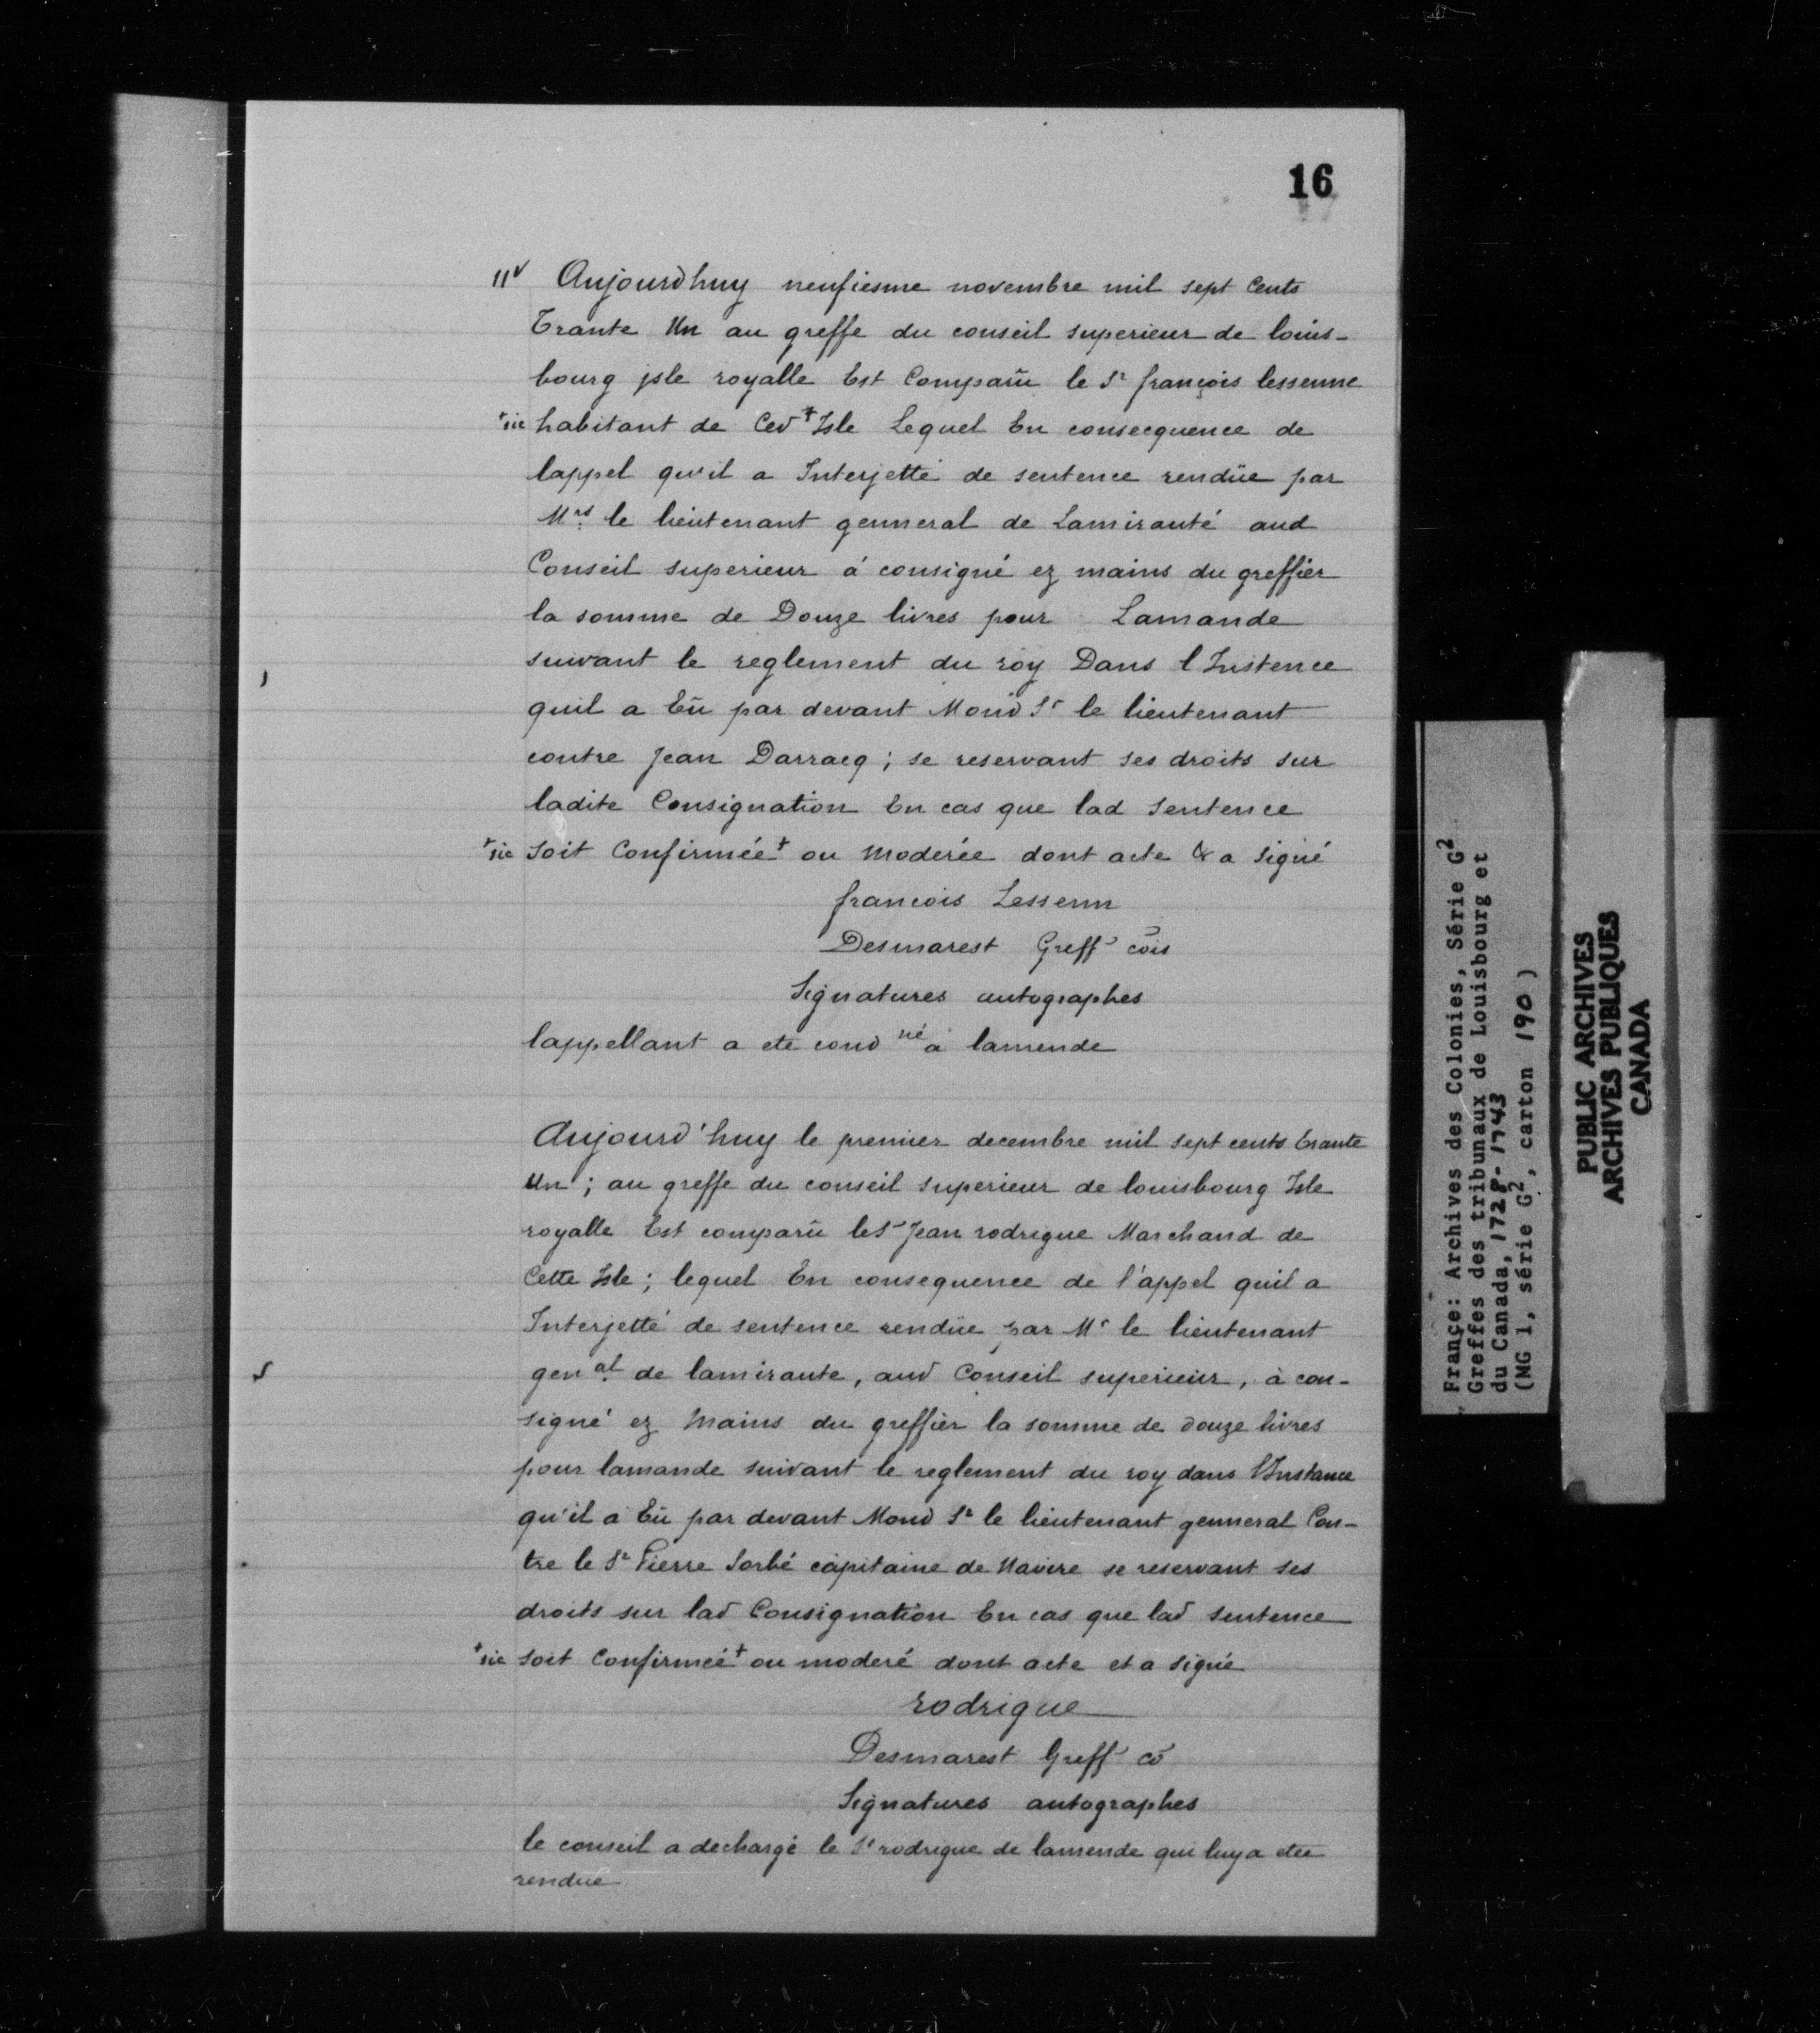 16
11v Aujourdhuy neufiesme novembre mil sept Cents
Trante Un au greffe du conseil superieur de louis-
bourg jsle royalle Est Comparû le Sr françois lessenne
+sic habitant de Ced+ Isle Lequel En consecquence de
lappel qu'il a Interjetté de sentence rendüe par
Mrs le lieutenant genneral de Lamirauté aud
Conseil superieur á consigné ez mains du greffier
la somme de Douze livres pour Lamande
suivant le reglement du roy Dans l Instence
quil a Eû par devant Mond Sr le lieutenant
contre Jean Darracq ; se reservant ses droits sur
ladite Consignation En cas que lad Sentence
+sic soit Confirmée+ ou moderée dont acte & a signé
francois Lessenn
Desmarest Greff cõis
Signatures autographes
lappellant a ete cond né a lamende
Aujourd'huy le premier decembre mil sept cents trante
Un ; au greffe du conseil superieur de louisbourg Isle
royalle Est comparû le Sr Jean rodrigue Marchand de
Cette Isle ; lequel En consequence de l'appel quil a
Interjetté de sentence rendüe par Mr le lieutenant
gen al de lamiraute, aud Conseil superieur, à con-
signé ez mains du greffier la somme de douze livres
pour lamande suivant le reglement du roy dans l'Instance
qu'il a Eû par devant Mond Sr le lieutenant genneral Con-
tre le Sr Pierre Sorbé capitaine de Navire se reservant ses
droits sur lad Consignation En cas que lad sentence
+sic soit Confirmée+ ou moderé dont acte et a signé
rodrigue
Desmarest Greff cõ
Signatures autographes
le conseil a dechargé le Sr rodrigue de lamende qui luy a etée
rendue
France: Archives des Colonies, Série G2
Greffes des tribunaux de Louisbourg et
du Canada, 1728-1743
(MG 1, série G2, carton 190)
PUBLIC ARCHIVES
ARCHIVES PUBLIQUES
CANADA